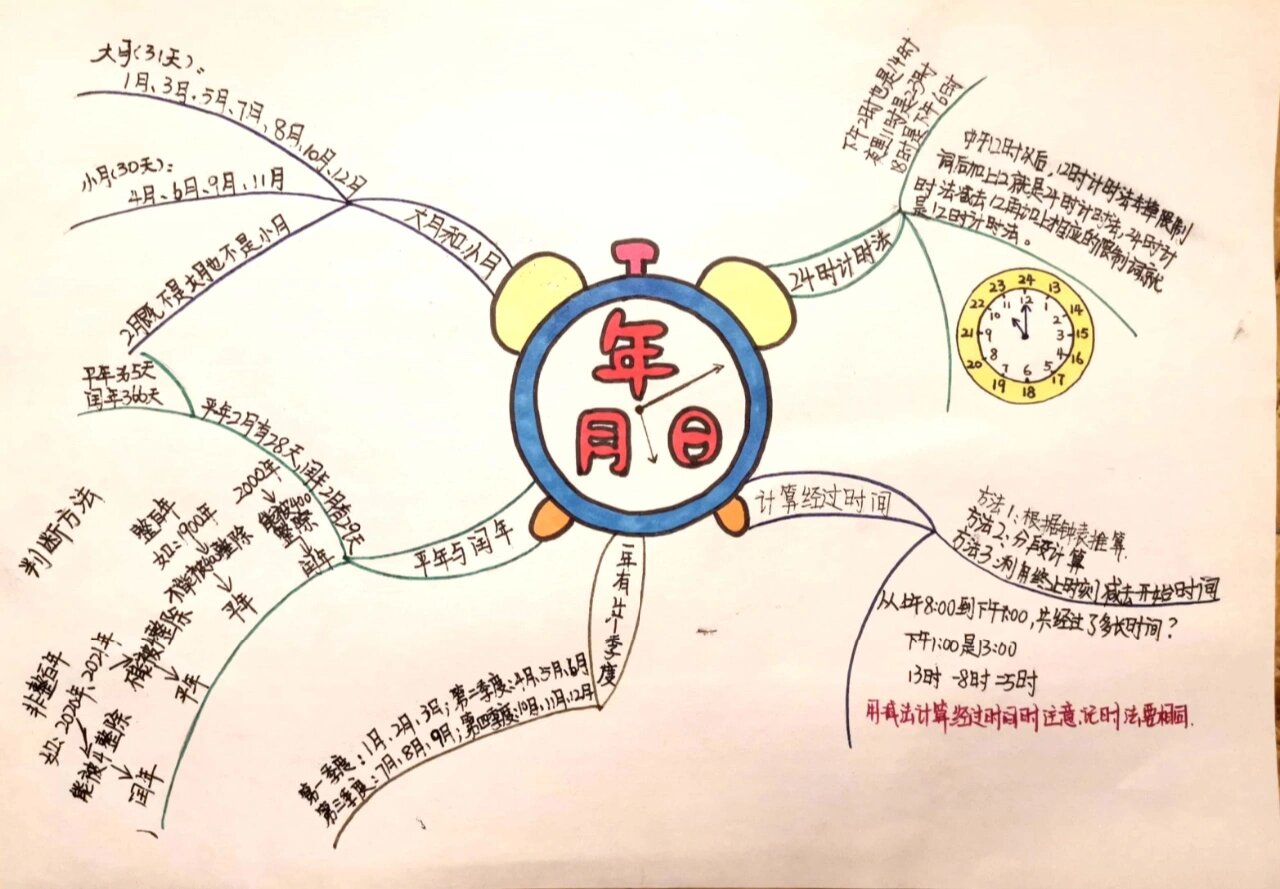 年
月 日
大月和小月
大月(31天):
1月、3月、5月、7月、8月、10月、12月
小月(30天):
4月、6月、9月、11月
2月既不是大月也不是小月
24时计时法
下午2时也是14时
夜里11时是23时
18时是下午6时
中午12时以后,12时计时法去掉限制
词后加上12就是24时计时法,24时计
时法减去12再加上相应的限制词就
是12时计时法。
24 13 14 15 16 17 18 19 20 21 22 23
12 1 2 3 4 5 6 7 8 9 10 11
平年与闰年
平年2月有28天,闰年2月有29天
平年365天
闰年366天
判断方法
整百年
如:1900年
不能被400整除
平年
2000年
能被400
整除
闰年
非整百年
如:2020年、2021年
不能被4整除
平年
能被4整除
闰年
一年有4个季度
第一季度:1月、2月、3月;第二季度:4月、5月、6月
第三季度:7月、8月、9月;第四季度:10月、11月、12月
计算经过时间
方法1:根据钟表推算.
方法2:分段计算
方法3:利用终止时刻减去开始时间
从上午8:00到下午1:00,共经过了多长时间?
下午1:00是13:00
13时-8时=5时
用减法计算经过时间时注意,记时法要相同.